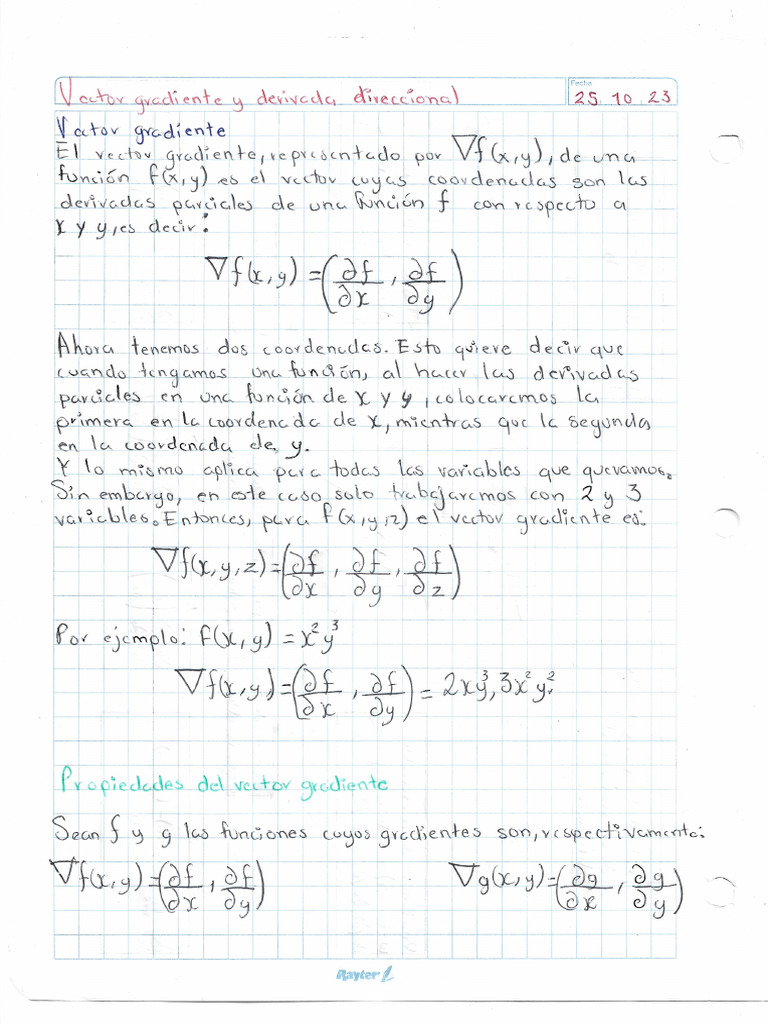 Vector gradiente y derivada direccional
Fecha
25 10 23
Vector gradiente
El vector gradiente, representado por ∇f(x,y), de una
función f(x,y) es el vector cuyas coordenadas son las
derivadas parciales de una función f con respecto a
x y y, es decir:
∇f(x,y) = (∂f/∂x, ∂f/∂y)
Ahora tenemos dos coordenadas. Esto quiere decir que
cuando tengamos una función, al hacer las derivadas
parciales en una función de x y y, colocaremos la
primera en la coordenada de x, mientras que la segunda
en la coordenada de y.
Y lo mismo aplica para todas las variables que queramos.
Sin embargo, en este caso solo trabajaremos con 2 y 3
variables. Entonces, para f(x,y,z) el vector gradiente es:
∇f(x,y,z) = (∂f/∂x, ∂f/∂y, ∂f/∂z)
Por ejemplo: f(x,y) = x²y³
∇f(x,y) = (∂f/∂x, ∂f/∂y) = 2xy³, 3x²y².
Propiedades del vector gradiente
Sean f y g las funciones cuyos gradientes son, respectivamente:
∇f(x,y) = (∂f/∂x, ∂f/∂y) ∇g(x,y) = (∂g/∂x, ∂g/∂y)
Rayter